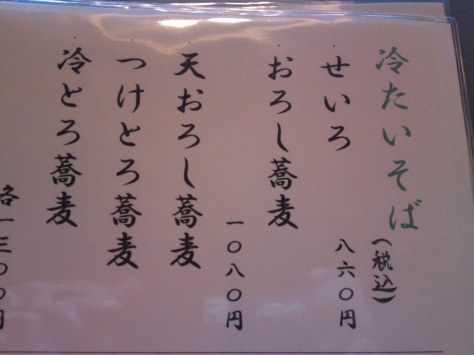 冷たいそば(税込)
せいろ 八六〇円
おろし蕎麦 一〇八〇円
天おろし蕎麦
つけとろ蕎麦
冷とろ蕎麦
各一三〇〇円